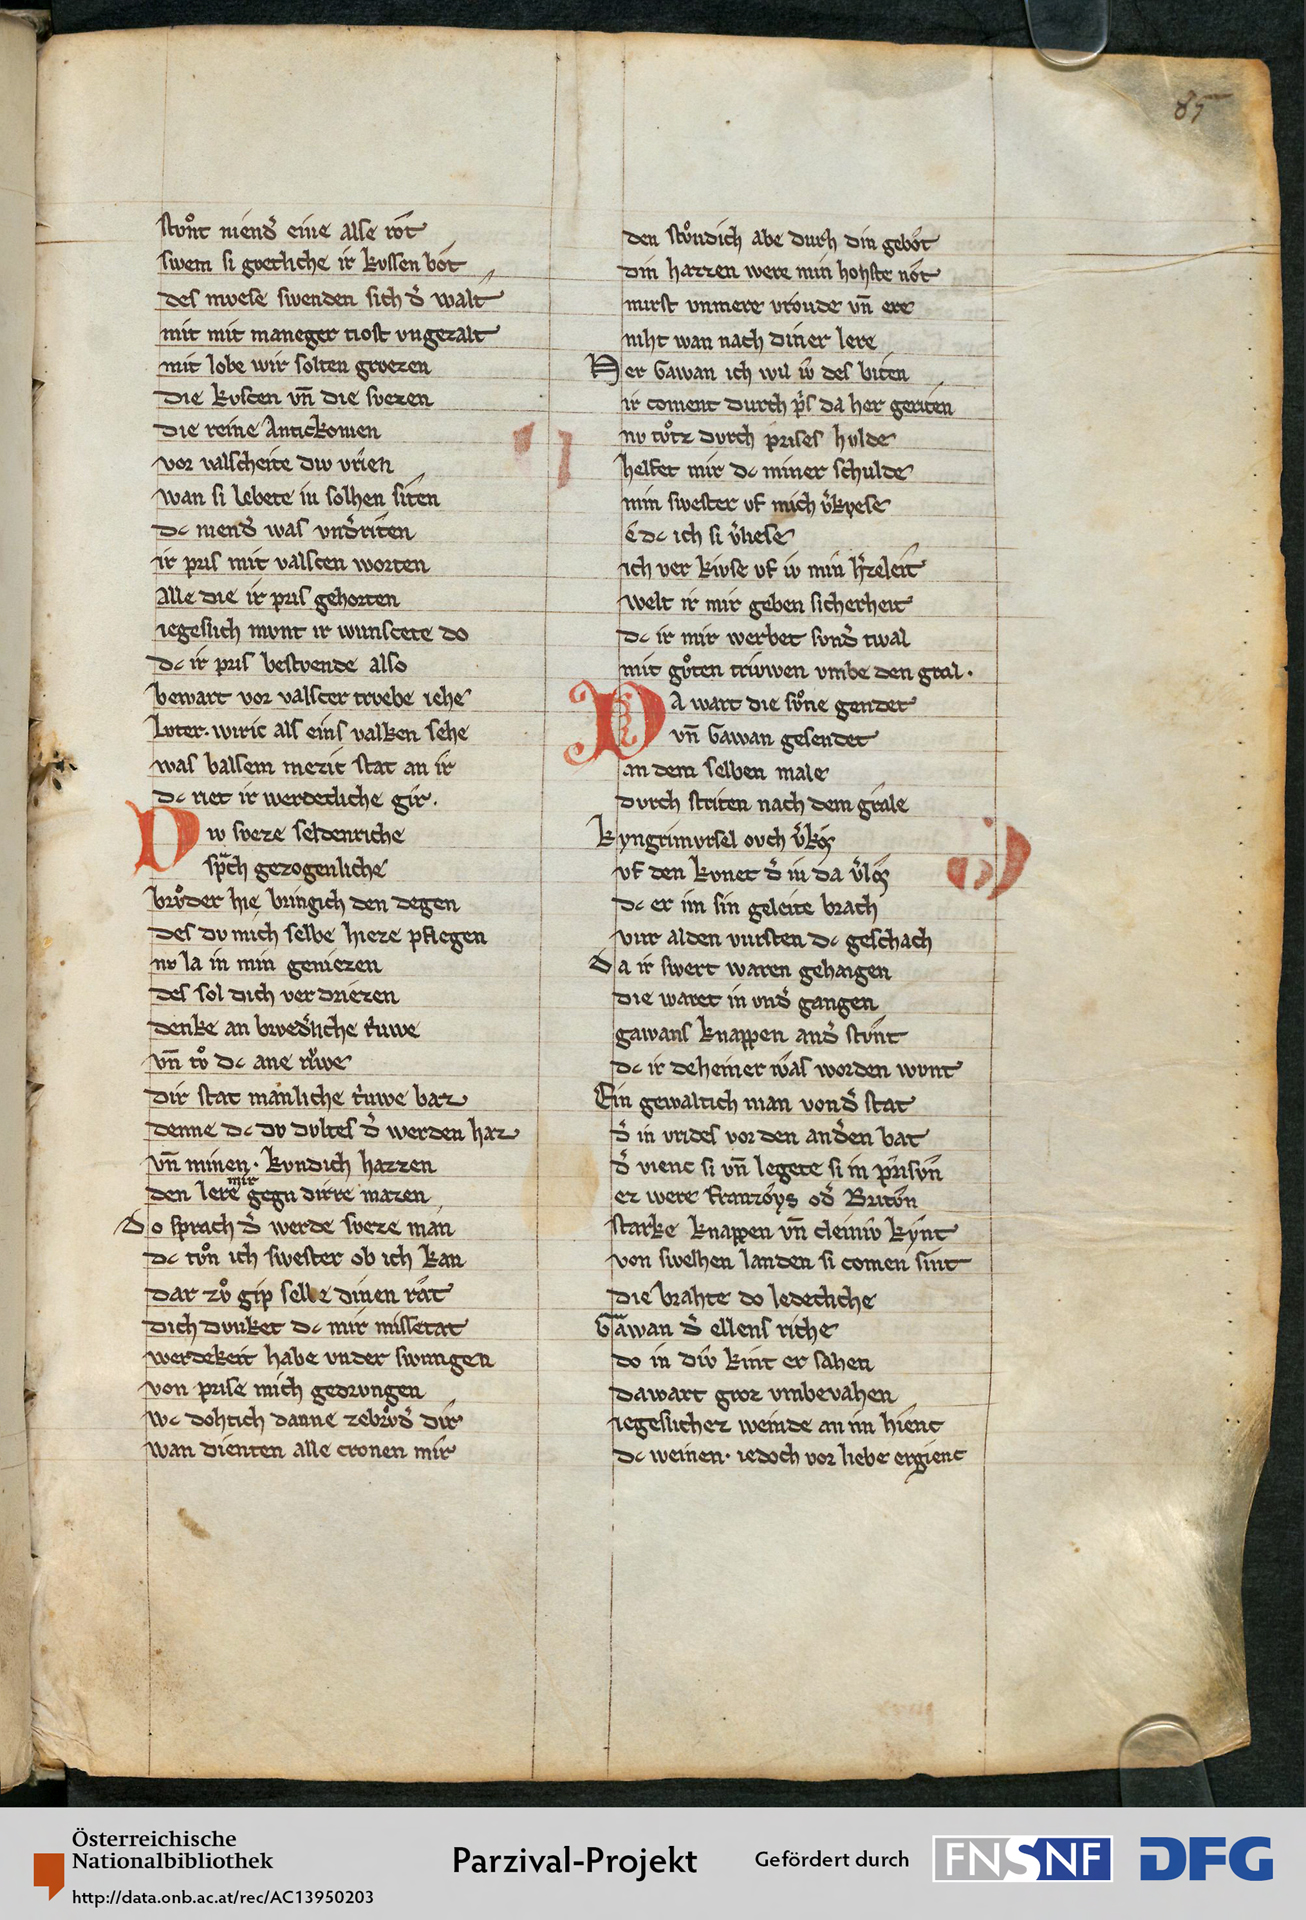 85
stvͦnt niend͛ eine alse rot
swem si gvetliche ir kvssen bot
des mvese swenden sich d͛ walt
mit mit maneger tiost vngezalt
mit lobe wir solten grvezen
die kvscen vn̄ die svezen
die reine Antickonien
vor valscheite div vrien
wan si lebete in solhen siten
dc niend͛ was vnd͛riten
ir pris mit valscen worten
Alle die ir pris gehorten
iegeslich mvnt ir wunscete do
dc ir pris bestvende also
bewart vor valscer trvebe iehe
Lvter. wiric als eins valken sehe
was balsem mezit stat an ir
dc riet ir werdecliche gir.
Div sveze seldenriche
spͣch gezogenliche
brvͦder hie bringich den degen
des dv mich selbe hieze pflegen
nv la in min geniezen
des sol dich ver driezen
denke an brved͛liche triwe
vn̄ tvͦ dc ane rivwe
dir stat manliche triwe baz
denne dc dv dvltes d͛ werden haz
vn̄ minen. kvndich hazzen
den lere mir gegn dirre mazen
do sprach d͛ werde sveze man
dc tvͦn ich swester ob ich kan
dar zvͦ gip selbe dinen rat
dich dvnket dc mir missetat
werdekeit habe vnder swungen
von prise mich gedrvngen
wc dohtich danne zebrvͦd͛ dir
wan dienten alle cronen mir
den stvͦndich abe durh din gebot
din hazzen were min hohste not
mirst vnmere vroude vn̄ ere
niht wan nach diner lere
Her Gawan ich wil iv̂ des biten
ir coment durch p͛s da her geriten
nv tvͦtz dvrch prises hvlde
helfet mir dc miner schulde
min swester vf mich v͛kyese
ê dc ich si v͛liese
ich ver kivse vf iv min h͛zeleit
welt ir mir geben sicherheit
dc ir mir werbet svnd͛ twal
mit gvͦten trivwen vmbe den gral.
DA wart die svͦne gendet
vn̄ Gawan gesendet
an dem selben male
durch striten nach dem grale
kyngrimvrsel ovch v͛kos
vf den kvnec d͛ in da v͛los
dc er im sin geleite brach
vur alden vursten dc geschach
da ir swert waren gehangen
die waret in vnd͛ gangen
gawans knappen and͛ stvnt
dc ir deheiner was worden wvnt
Ein gewaltich man vond͛ stat
d͛ in vrides vor den and͛en bat
d͛ vienc si vn̄ legete si in prisvn
ez were franzoys od͛ Britvn
starke knappen vn̄ cleiniv kynt
von swelhen landen si comen sint
die brahte do ledecliche
Gawan d͛ ellens riche
do in div kint er sahen
dawart groz vmbevahen
iegeslichez weinde an im hienc
dc weinen. iedoch vor liebe ergienc
Österreichische
Nationalbibliothek
http://data.onb.ac.at/rec/AC13950203
Parzival-Projekt
Gefördert durch
FNSNF
DFG